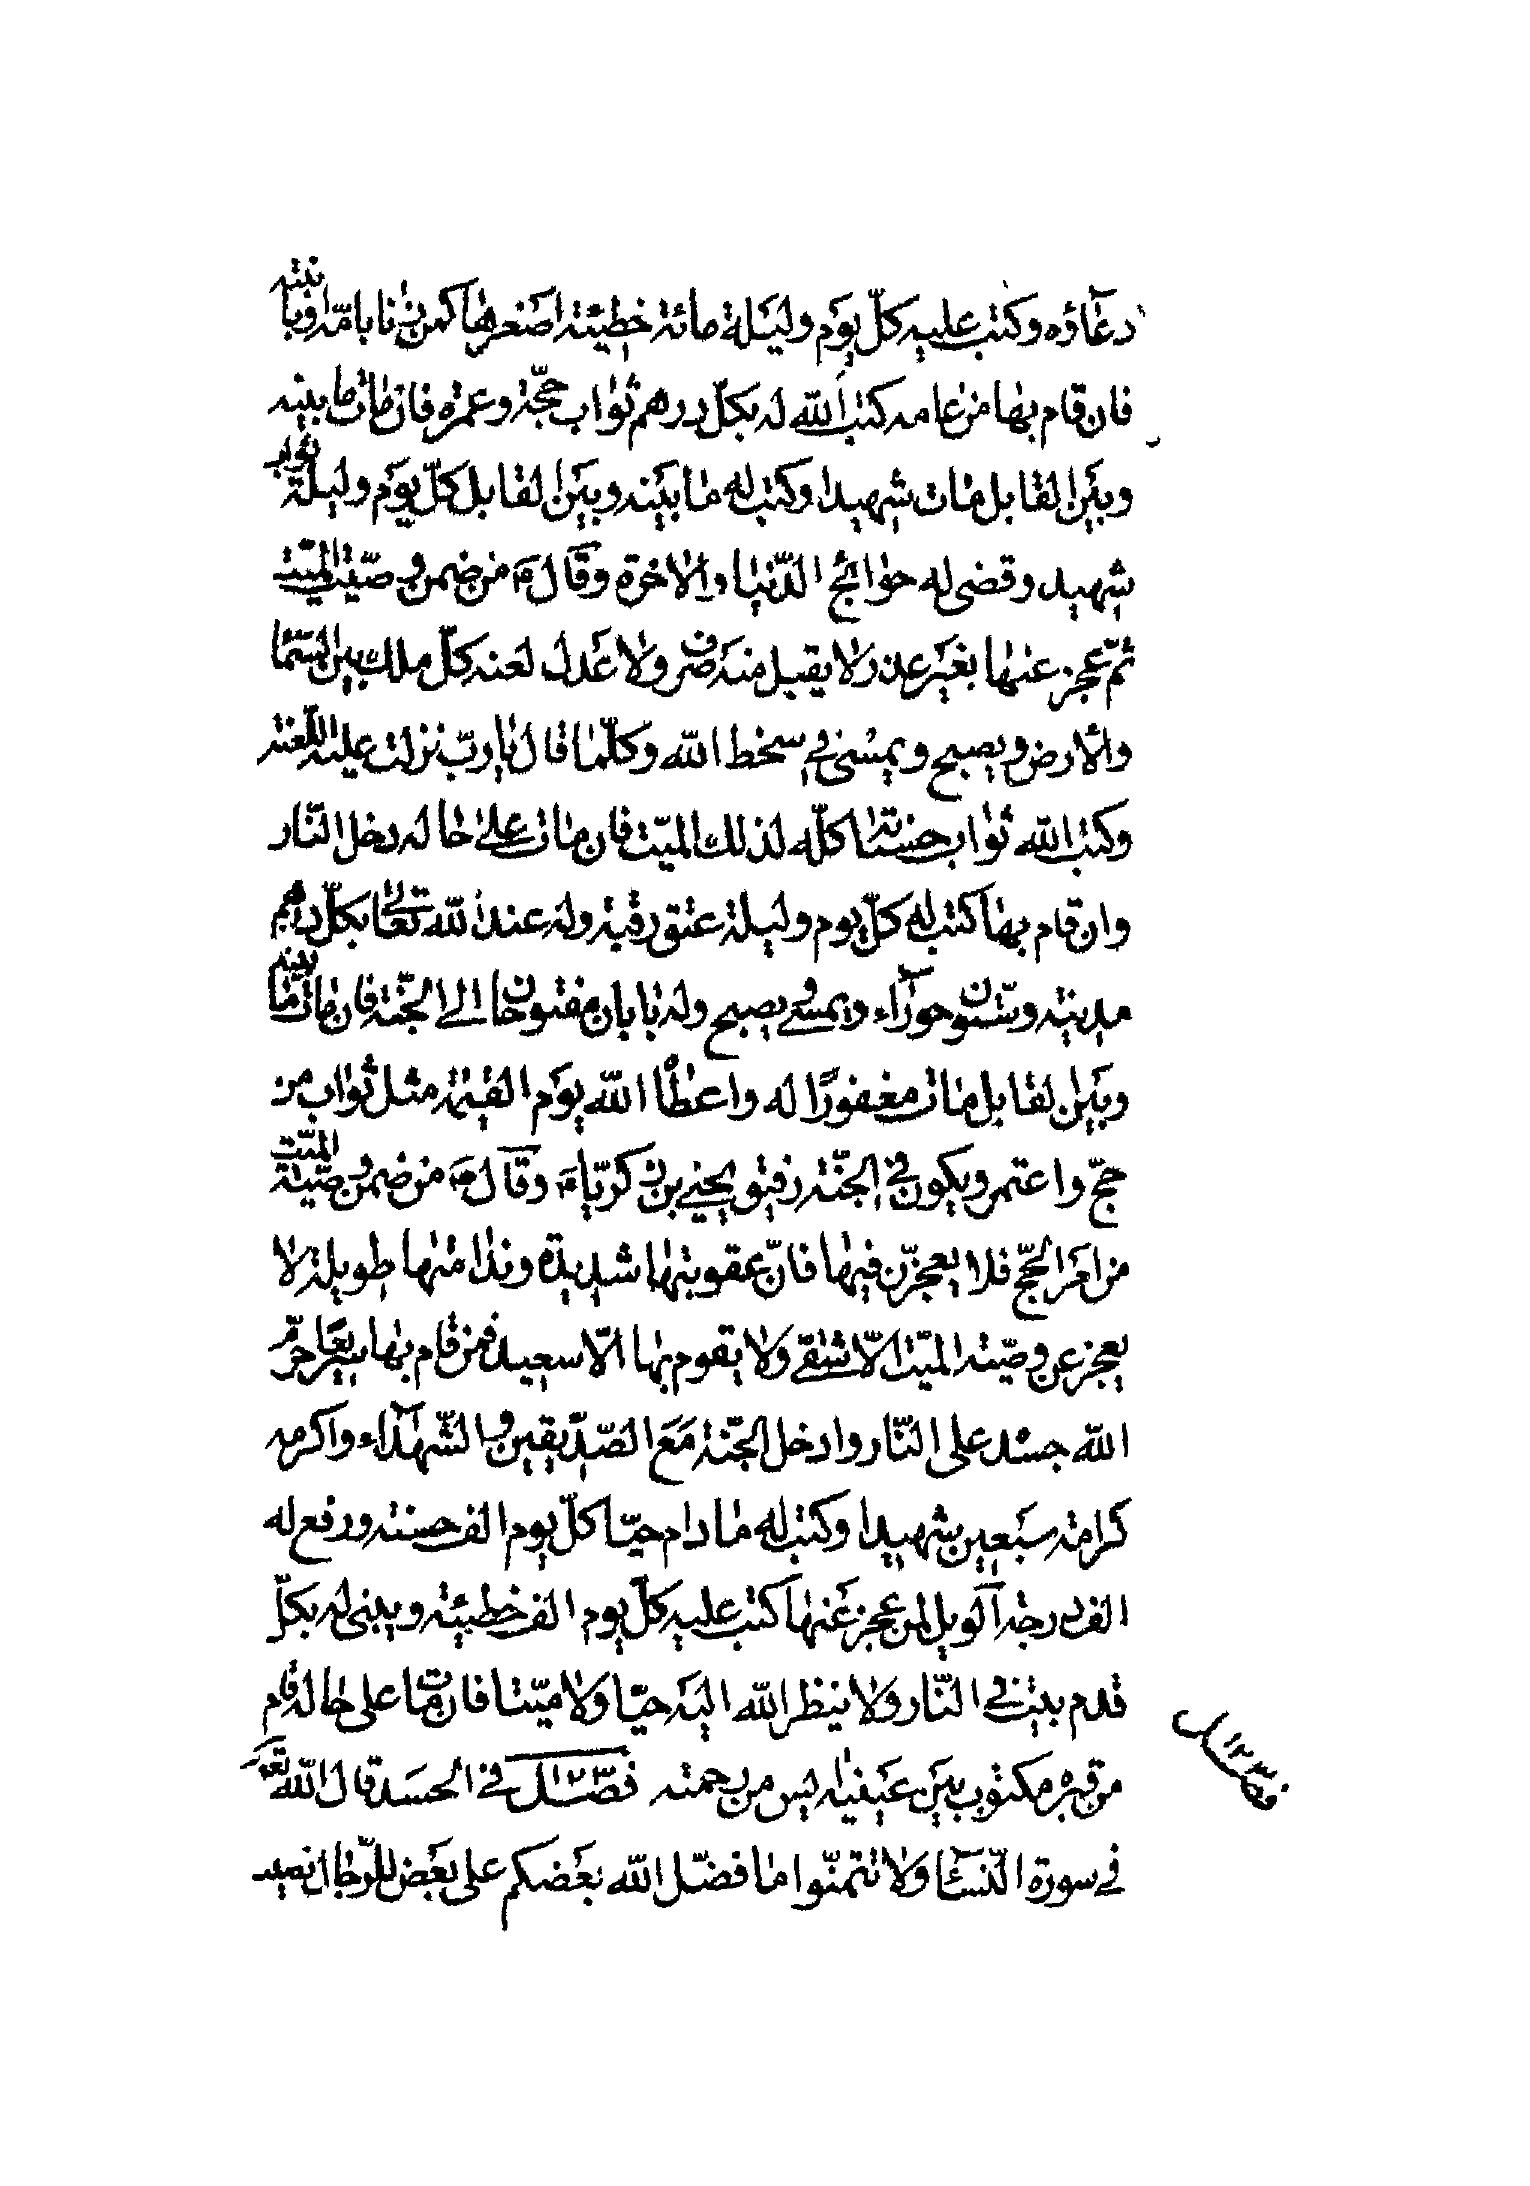 دعاؤه وكتب عليه كلّ يوم وليلة مائة خطيئة اصغرها كمن زنا بامّه او بابنته
فان قام بها من عامه كتب الله له بكلّ درهم ثواب حجّة وعمرة فان مات ما بينه
وبين القابل مات شهيدا وكتب له ما بينه وبين القابل كلّ يوم وليلة ثواب
شهيد وقضى له حوائج الدّنيا والاخرة وقال ؐ من ضمن وصيّة الميّت
ثمّ عجز عنها بغير عذر لا يقبل منه صرف ولا عدل لعنه كلّ ملك بين السّماء
والارض ويصبح ويمسى في سخط الله وكلّما قال يا ربّ نزلت عليه اللّعنة
وكتب الله ثواب حسناته كلّه لذلك الميّت فان مات على حاله دخل النّار
وان قام بها كتب له كلّ يوم وليلة عتق رقبة وله عند الله تعالى بكلّ درهم
مدينة وستّون حورآء ويمسى ويصبح وله بابان مفتوحان الى الجنّة فان مات ما بينه
وبين القابل مات مغفورًا له واعطاه الله يوم القيٰمة مثل ثواب من
حجّ واعتمر ويكون في الجنّة رفيق يحيى بن زكريّا ؑ وقال ؐ من ضمن وصيّة الميّت
من امر الحجّ فلا يعجزن فيها فانّ عقوبتها شديدة وندامتها طويلة لا
يعجز عن وصيّة الميّت الّا شقىّ ولا يقوم بها الّا سعيد فمن قام بها سريعا حرّم
الله جسده على النّار وادخل الجنّة مع الصّدّيقين والشّهدآء واكرمه
كرامة سبعين شهيدا وكتب له ما دام حيّا كلّ يوم الف حسنة ورفع له
الف درجة آلويل لمن عجز عنها كتب عليه كلّ يوم الف خطيئة ويبنى له بكلّ
قدم بيت في النّار ولا ينظر الله اليه حيّا ولا ميّتا فان مات على حاله قام
من قبره مكتوب بين عينيه ايس من رحمته فصّل ١٢٣ في الحسد قال الله تعالى
في سورة النّسآء ولا تتمنّوا ما فضّل الله بعضكم على بعض للرّجال نصيب
فصل ١٢٣